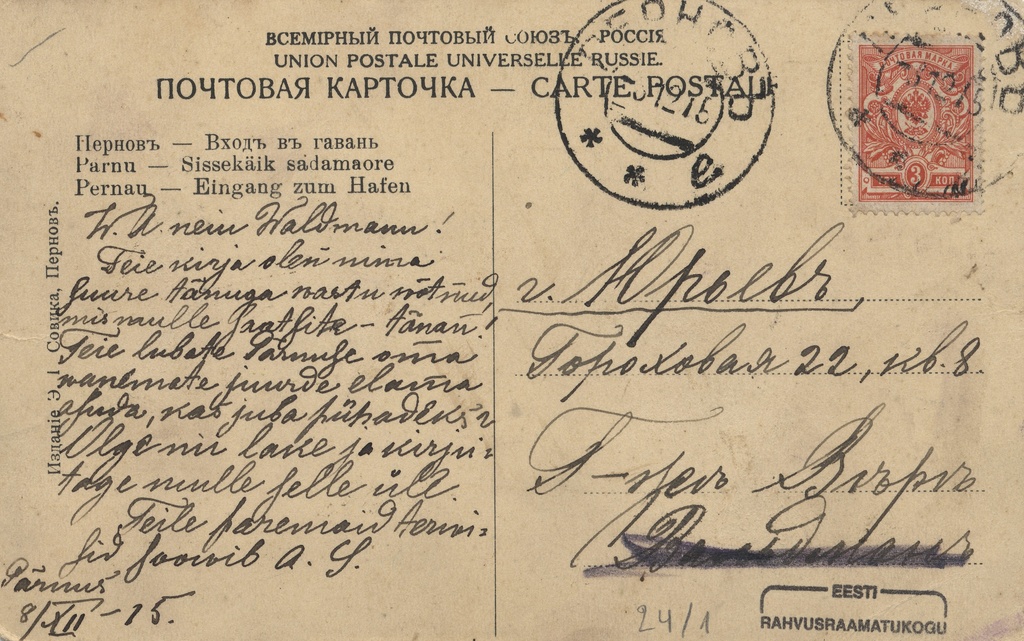 ВСЕМІРНЫЙ ПОЧТОВЫЙ СОЮЗЪ. РОССІЯ
UNION POSTALE UNIVERSELLE RUSSIE.
ПОЧТОВАЯ КАРТОЧКА — CARTE POSTALE
Перновъ — Входъ въ гавань
Parnu — Sissekäik sadamaore
Pernau — Eingang zum Hafen
Изданіе Э. І. Совика, Перновъ.
W. A. nein Waldmann!
Teie kirja olen mina
suure tänuga wastu wõtnud,
mis mulle saatsite - tänan!
Teie lubate Pärnusse oma
wanemate juurde elama
asuda, kas juba pühadeks?
Olge nii lake ja kirju-
tage mulle selle üll.
Teile paremaid terwi-
sid soowib A. S.
Pärnus
8/XII -15.
ПЕРНОВЪ
е
ПОЧТОВАЯ МАРКА
3 КОП
г. Юрьевъ,
Гороховая 22, кв. 8.
Г-жѣ
24/1
EESTI
RAHVUSRAAMATUKOGU